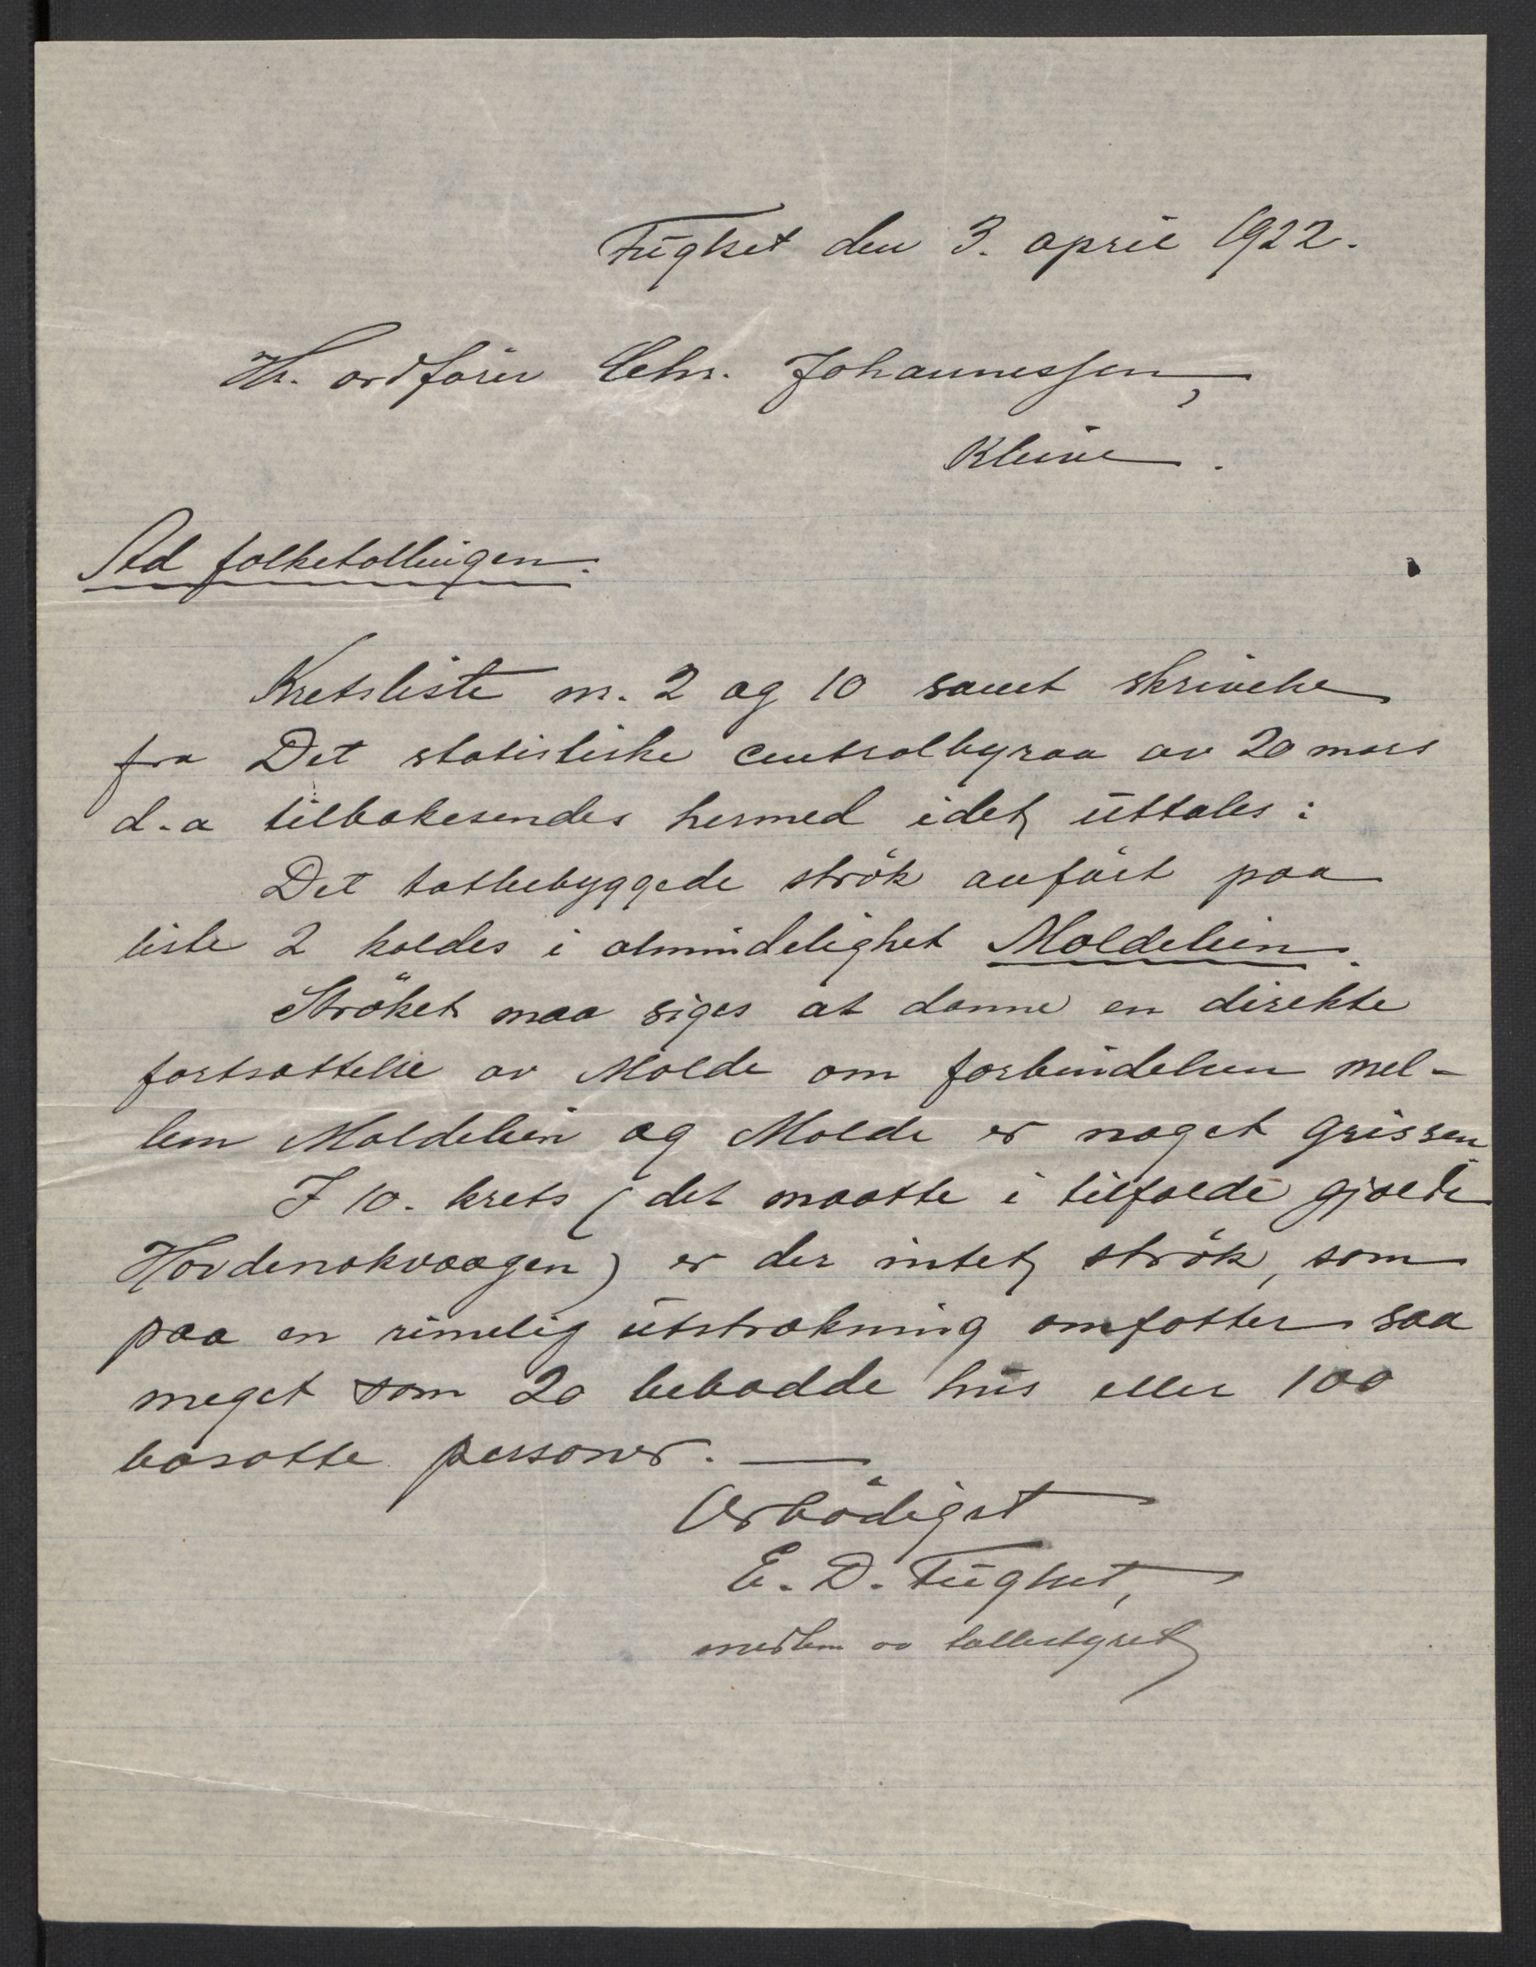 Fuglset den 3. april 1922.
Hr. ordfører Chr. Johannessen,
Kleive.
Ad folketællingen.
Kretsliste nr. 2 og 10 samt skrivelse
fra Det statistiske centralbyraa av 20 mars
d.a tilbakesendes hermed idet uttales:
Det tætbebyggede strök anfört paa
liste 2 kaldes i almindelighet Moldelien.
Ströket maa siges at danne en direkte
fortsættelse av Molde om forbindelsen mel-
lem Moldelien og Molde er noget grissen
I 10. krets (det maatte i tilfælde gjælde
Hovdenakvaagen) er der intet strök, som
paa en rimelig utstrækning omfatter saa
meget som 20 bebodde hus eller 100
bosatte personer. —
Ærbödigst
E. D. Fuglset,
medlem av tællestyret